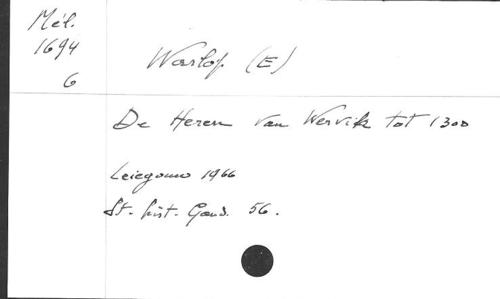 Mél.
1694
6
Warlop (E)
De Heren van Wervik tot 1300
Leiegouw 1966
St. hist. Gand. 56.